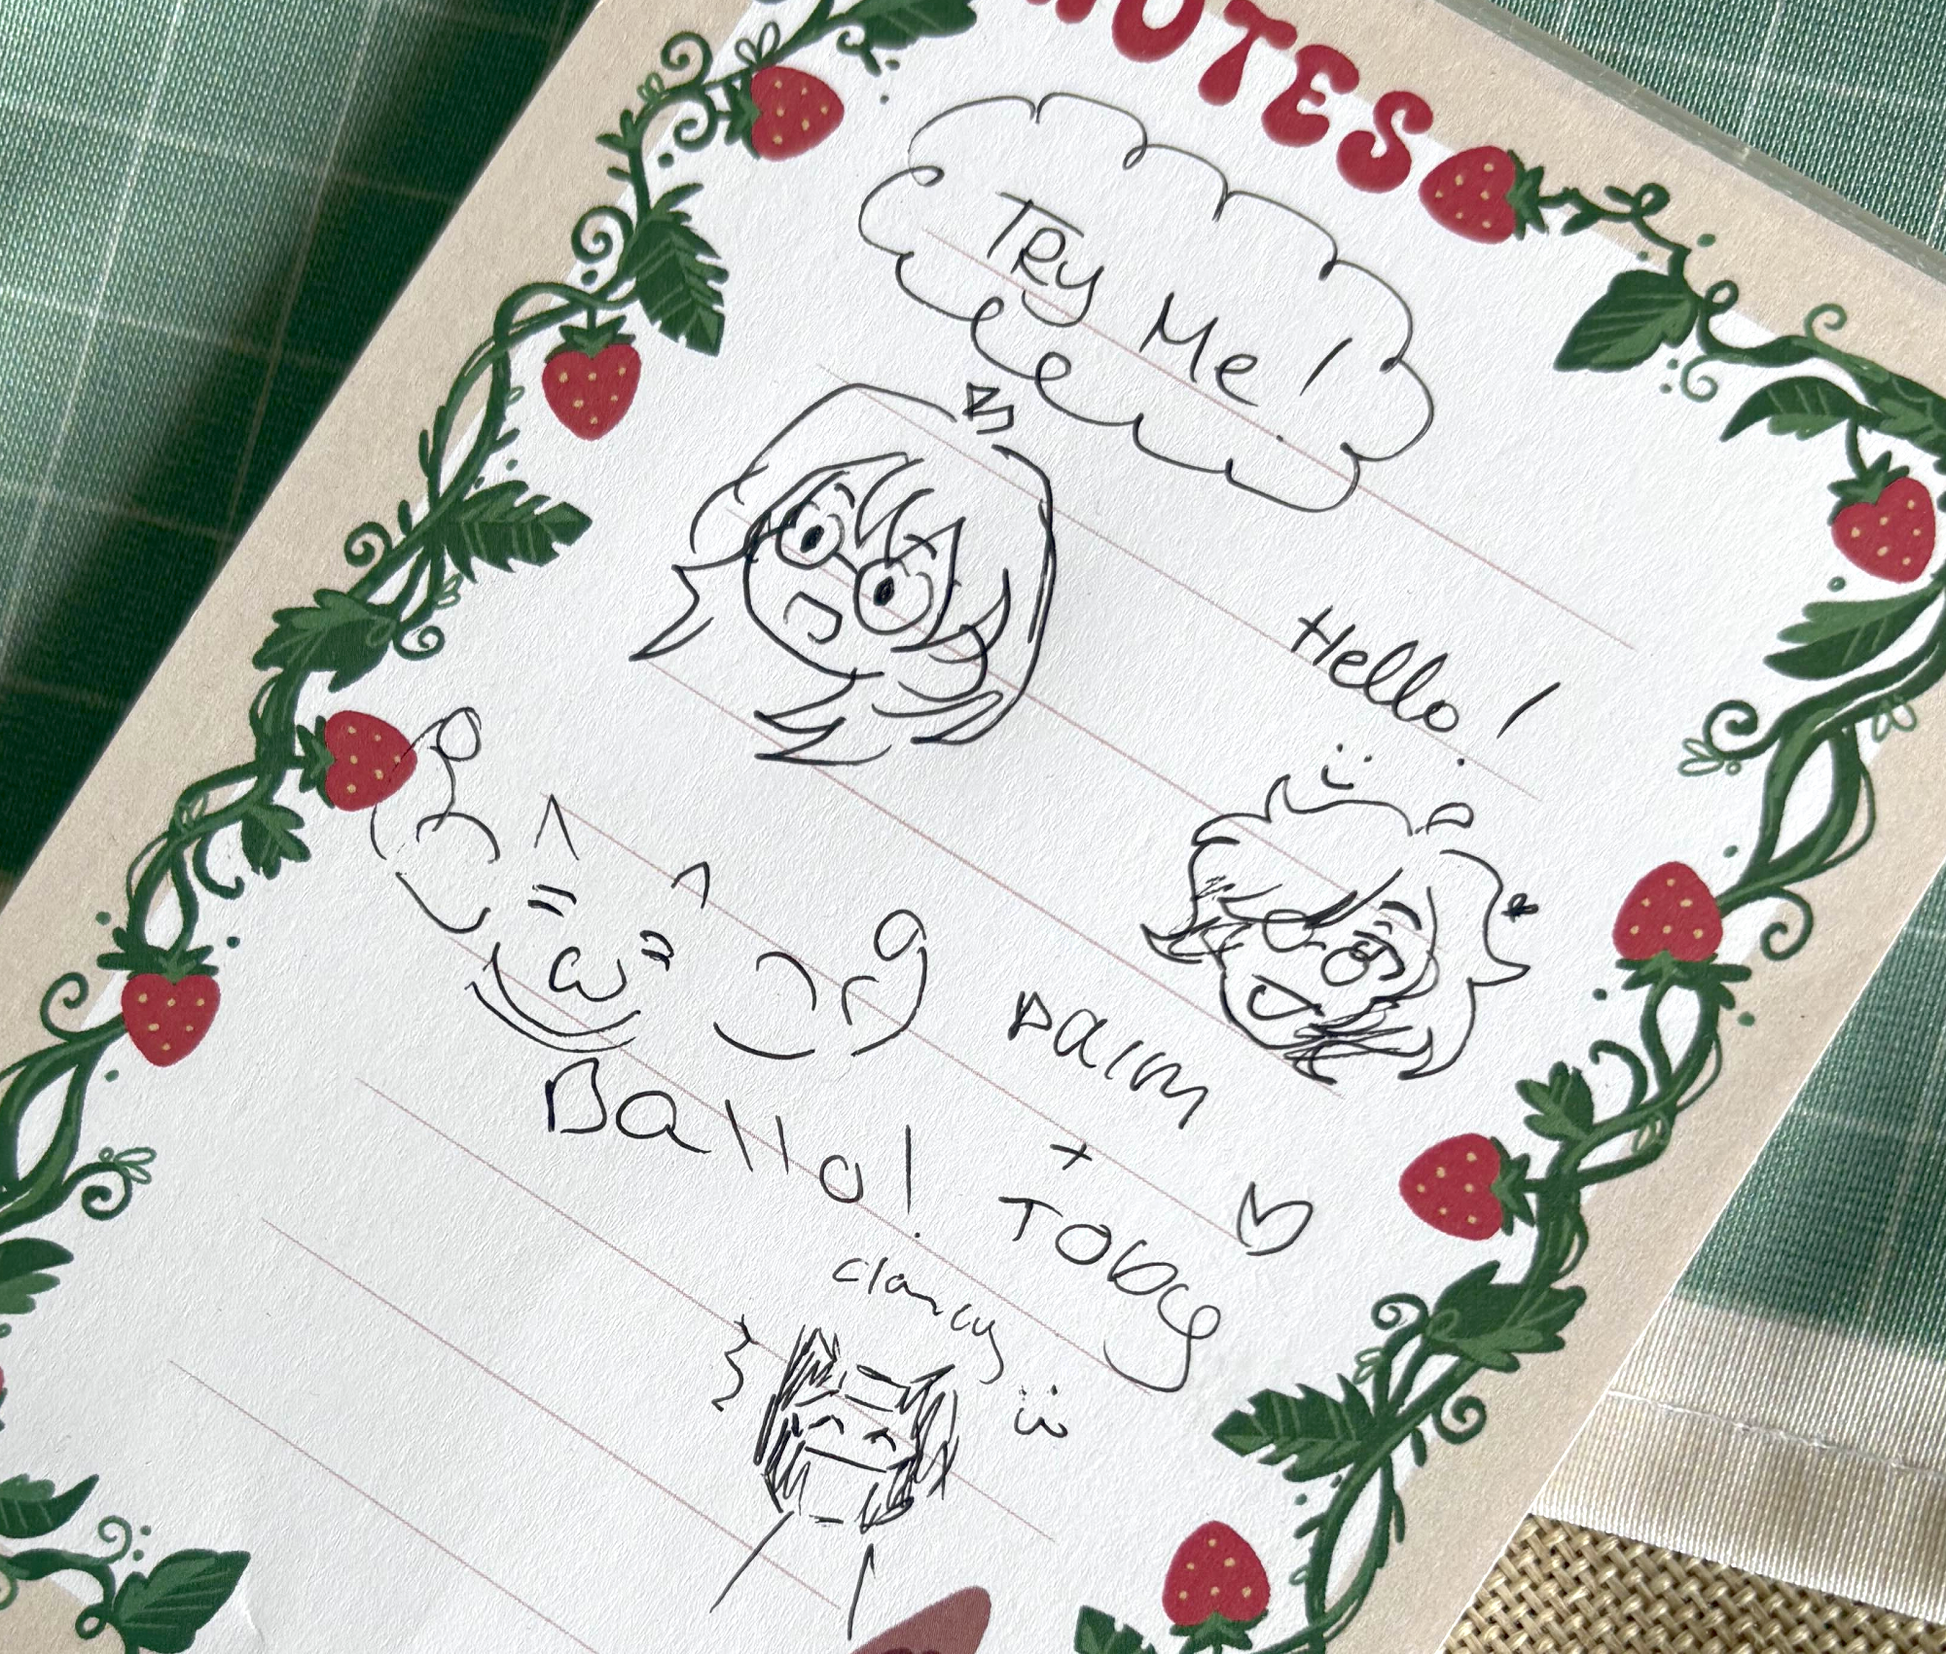 NOTES
TRy Me!
Hello!
:)
Ballo!
Palm
+
TOBY
clancy